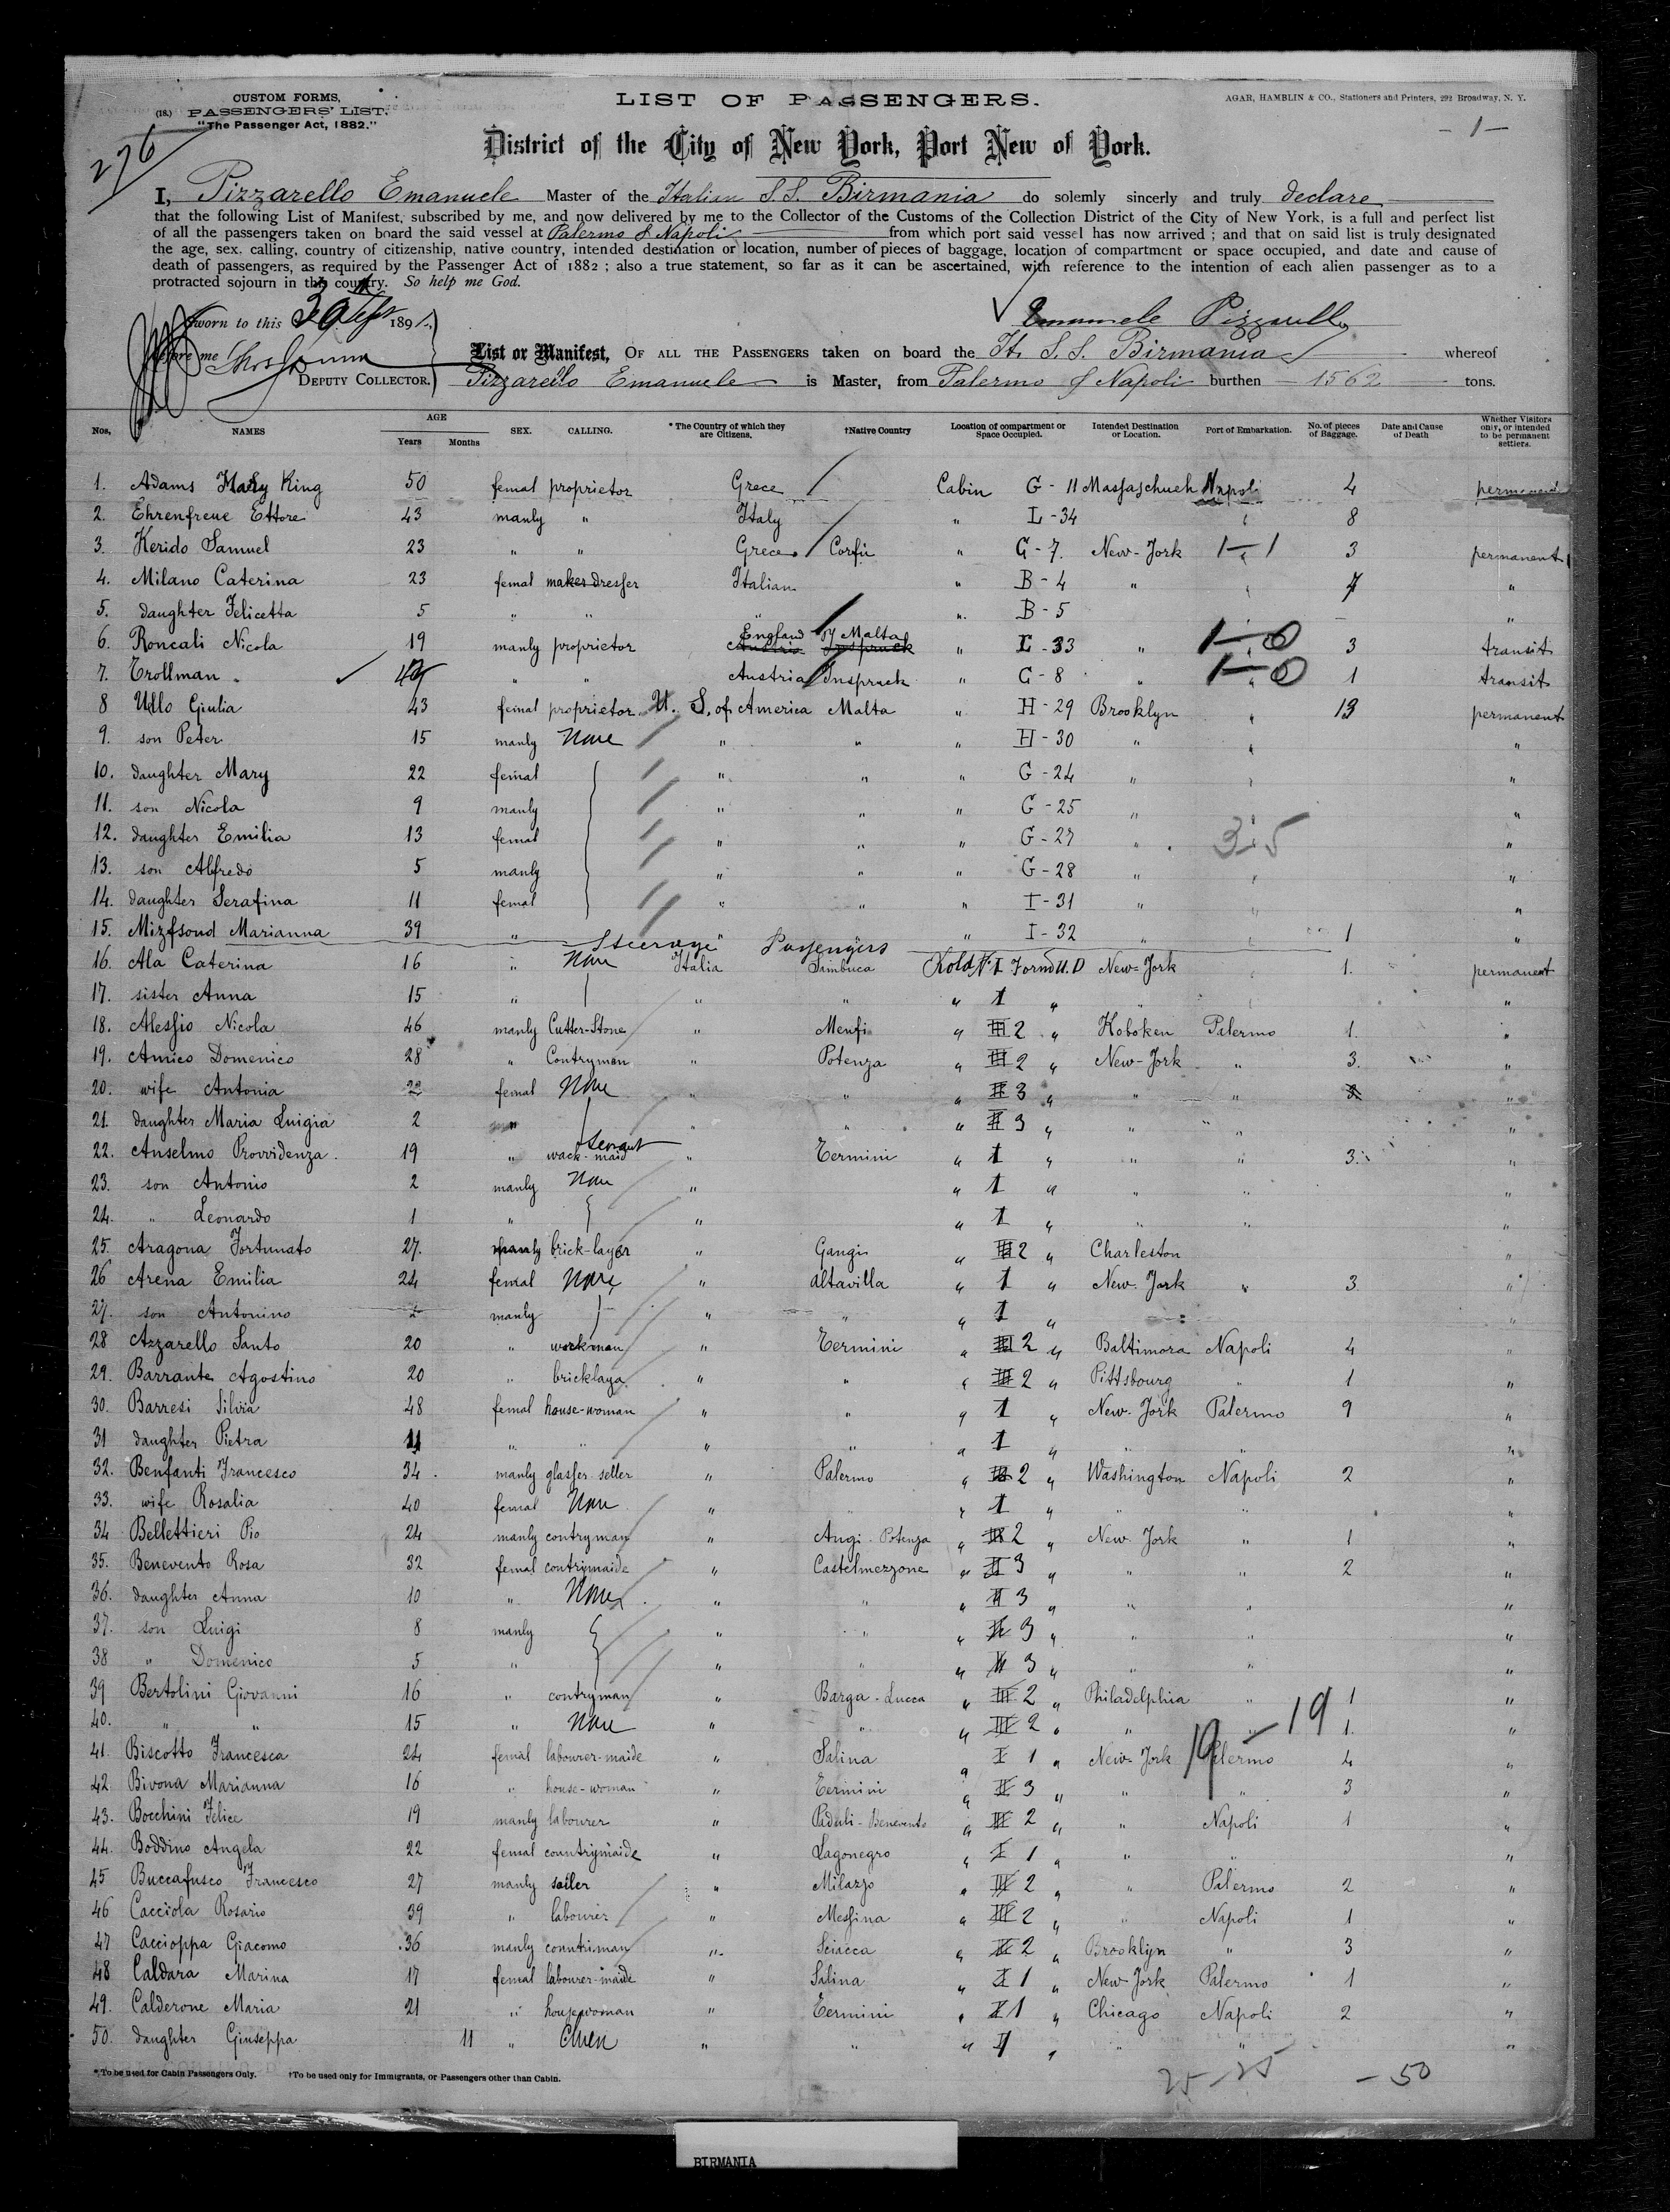 CUSTOM FORMS,
(18.) PASSENGERS' LIST.
"The Passenger Act, 1882."
276
LIST OF PASSENGERS.
AGAR, HAMBLIN & CO., Stationers and Printers, 292 Broadway, N. Y.
- 1 -
District of the City of New York, Port New of York.
I, Pizzarello Emanuele Master of the Italian S.S. Birmania do solemly sincerly and truly declare
that the following List of Manifest, subscribed by me, and now delivered by me to the Collector of the Customs of the Collection District of the City of New York, is a full and perfect list
of all the passengers taken on board the said vessel at Palermo & Napoli from which port said vessel has now arrived ; and that on said list is truly designated
the age, sex, calling, country of citizenship, native country, intended destination or location, number of pieces of baggage, location of compartment or space occupied, and date and cause of
death of passengers, as required by the Passenger Act of 1882 ; also a true statement, so far as it can be ascertained, with reference to the intention of each alien passenger as to a
protracted sojourn in this country. So help me God.
Sworn to this 30 Sept 1891.
Emanuele Pizzarello
before me
DEPUTY COLLECTOR.
List or Manifest, OF ALL THE PASSENGERS taken on board the It. S.S. Birmania whereof
Pizzarello Emanuele is Master, from Palermo & Napoli burthen 1562 tons.
Nos. NAMES AGE Years Months SEX. CALLING. * The Country of which they are Citizens. †Native Country Location of compartment or Space Occupied. Intended Destination or Location. Port of Embarkation. No. of pieces of Baggage. Date and Cause of Death Whether Visitors only, or intended to be permanent settlers.
1. Adams Mary King 50 femal proprietor Grece Cabin G - 11 Massaschueh Napoli 4 permanent
2. Ehrenfreue Ettore 43 manly " Italy " L - 34 " 8
3. Kerido Samuel 23 " " Grece Corfù " G - 7. New-York 1-1 " 3 permanent
4. Milano Caterina 23 femal maker dresser Italian " B - 4 " " 7 "
5. daughter Felicetta 5 " " " " B - 5
6. Roncali Nicola 19 manly proprietor England by Malta Austria Inspruck " L - 33 " 1-0 3 transit
7. Trollman 49 " " Austria Inspruck " G - 8 " 1-0 1 transit
8 Ullo Giulia 43 femal proprietor U. S. of America Malta " H - 29 Brooklyn " 13 permanent
9. son Peter 15 manly None " " " H - 30 " " "
10. daughter Mary 22 femal " " " G - 24 " " "
11. son Nicola 9 manly " " " G - 25 " "
12. daughter Emilia 13 femal " " " G - 27 " 3-5 "
13. son Alfredo 5 manly " " " G - 28 " " "
14. daughter Serafina 11 femal " " " I - 31 " " "
15. Mizfsoud Marianna 39 " " " " I - 32 " " 1 "
Steerage Passengers
16. Ala Caterina 16 " None Italia Sambuca Kold N. I Forwd U. D New-York " 1. permanent
17. sister Anna 15 " " " " 1 " " " "
18. Alessio Nicola 46 manly Cutter-Stone " Menfi " III 2 " Hoboken Palermo 1. "
19. Amico Domenico 28 " Contryman " Potenza " III 2 " New-York " 3. "
20. wife Antonia 22 femal None " " " II 3 " " " 3 "
21. daughter Maria Luigia 2 " " " " II 3 " " " "
22. Anselmo Provvidenza 19 " wack-maid Servant " Termini " 1 " " " 3. "
23. son Antonio 2 manly None " " 1 " " " "
24. " Leonardo 1 " " " 1 " " " "
25. Aragona Fortunato 27. manly brick-layer " Gangi " III 2 " Charleston "
26 Arena Emilia 24 femal None " Altavilla " 1 " New-York " 3 "
27. son Antonino 2 manly " " " 1 " "
28 Azzarello Santo 20 " workman " Termini " III 2 " Baltimora Napoli 4 "
29. Barrante Agostino 20 " bricklaya " " " III 2 " Pittsbourg " 1 "
30. Barresi Silvia 48 femal house-woman " " " 1 " New-York Palermo 9 "
31 daughter Pietra 11 " " " " " 1 " " " "
32. Benfanti Francesco 34 manly glasser-seller " Palermo " III 2 " Washington Napoli 2 "
33. wife Rosalia 40 femal None " " " 1 " " " "
34 Bellettieri Pio 24 manly contryman " Angi-Potenza " III 2 " New York " 1 "
35. Benevento Rosa 32 femal contrymaide " Castelmezzone " II 3 " " " 2 "
36. daughter Anna 10 " None " " " II 3 " " " "
37. son Luigi 8 manly " " " II 3 " " " "
38 " Domenico 5 " " " " II 3 " " " "
39 Bertolini Giovanni 16 " contryman " Barga-Lucca " III 2 " Philadelphia " 1 "
40. " " 15 " None " " " III 2 " " " 19 1. "
41. Biscotto Francesca 24 femal labourer-maide " Salina " I 1 " New-York Palermo 4 "
42. Bivona Marianna 16 " house-woman " Termini " II 3 " " " 3 "
43. Bocchini Felice 19 manly labourer " Paduli-Benevento " III 2 " " Napoli 1 "
44. Boddino Angela 22 femal countrymaide " Lagonegro " I 1 " " " "
45 Buccafusco Francesco 27 manly sailer " Milazzo " III 2 " " Palermo 2 "
46 Cacciola Rosario 39 " labourer " Messina " III 2 " " Napoli 1 "
47 Caccioppa Giacomo 36 manly countriman " Sciacca " II 2 " Brooklyn " 3 "
48 Caldara Marina 17 femal labourer-maide " Salina " I 1 " New York Palermo 1 "
49. Calderone Maria 21 " housewoman " Termini " I 1 " Chicago Napoli 2 "
50. daughter Giuseppa 11 " " " " " " " "
* To be used for Cabin Passengers Only. †To be used only for Immigrants, or Passengers other than Cabin.
25 - 25 - 50
BIRMANIA